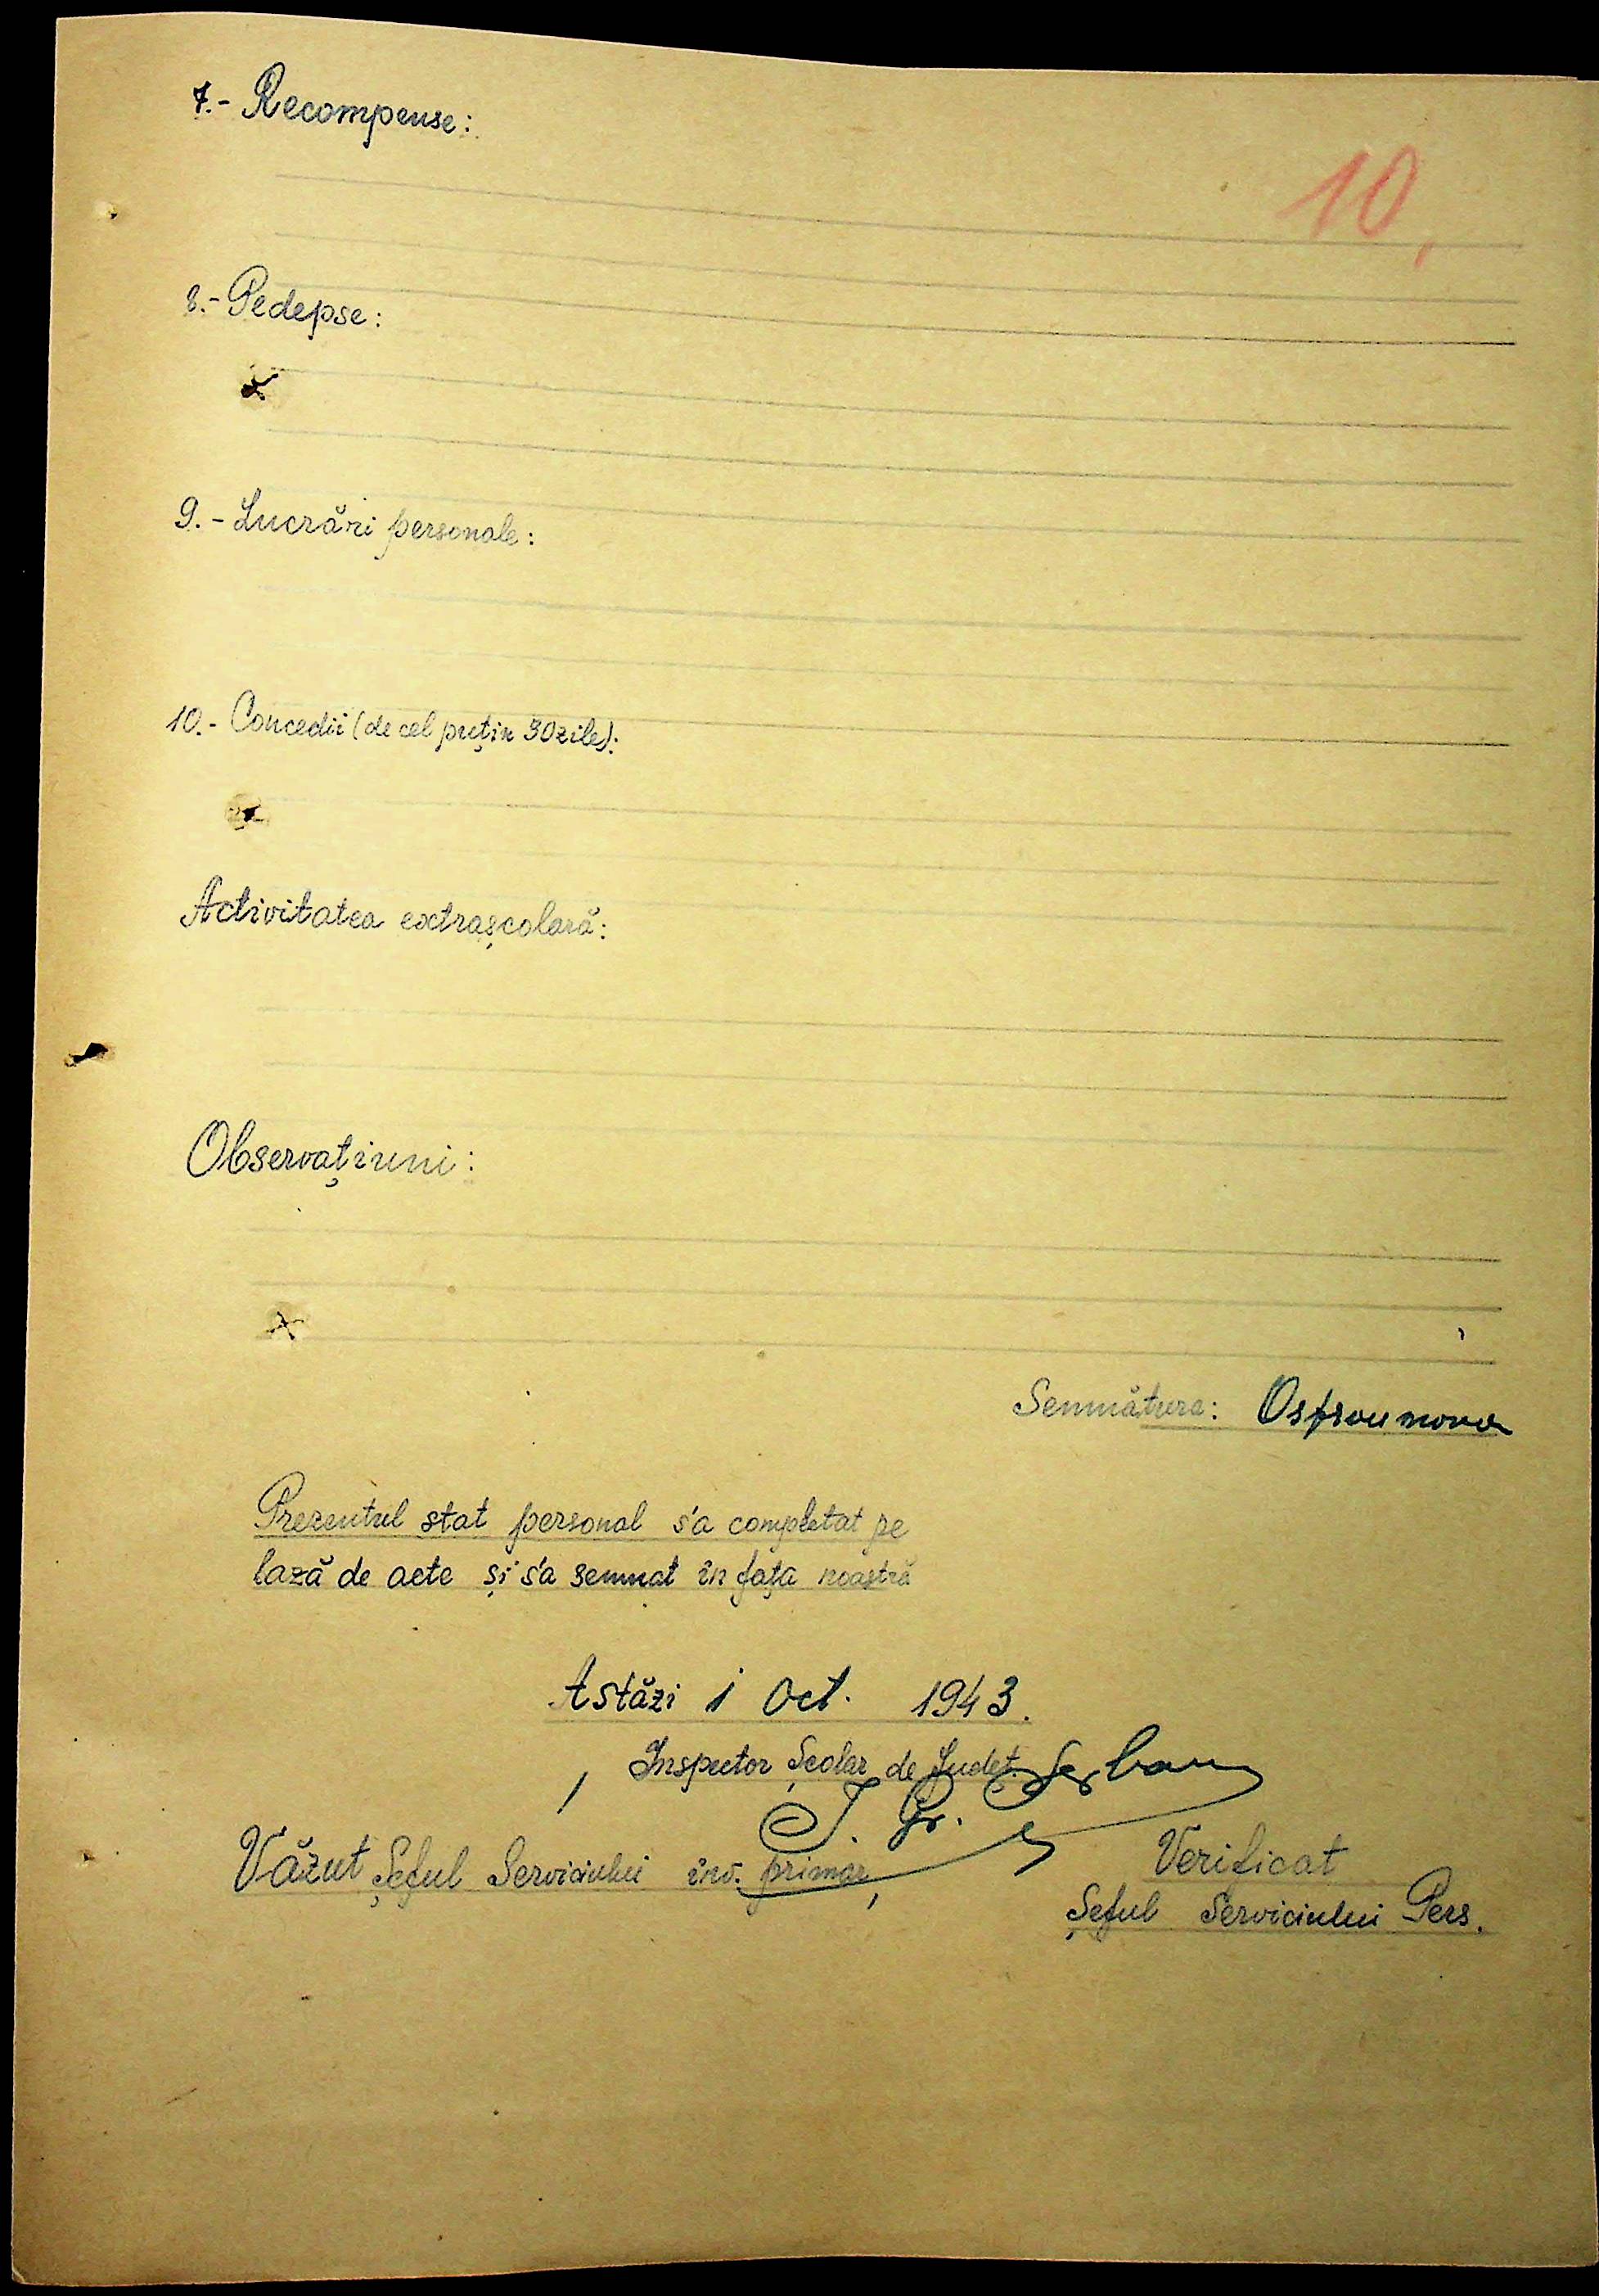 7.- Recompense:
10,
8.- Pedepse:
9.- Lucrări personale:
10.- Concedii (de cel puțin 30 zile):
Activitatea extrașcolară:
Observațiuni:
Semnătura: Ostroumova
Prezentul stat personal s'a completat pe
bază de acte și s'a semnat în fața noastră
Astăzi 1 Oct. 1943.
Inspector Școlar de Județ. Șerban
I. Gr.
Văzut Șeful Serviciului înv. primar,
Verificat
Șeful Serviciului Pers.